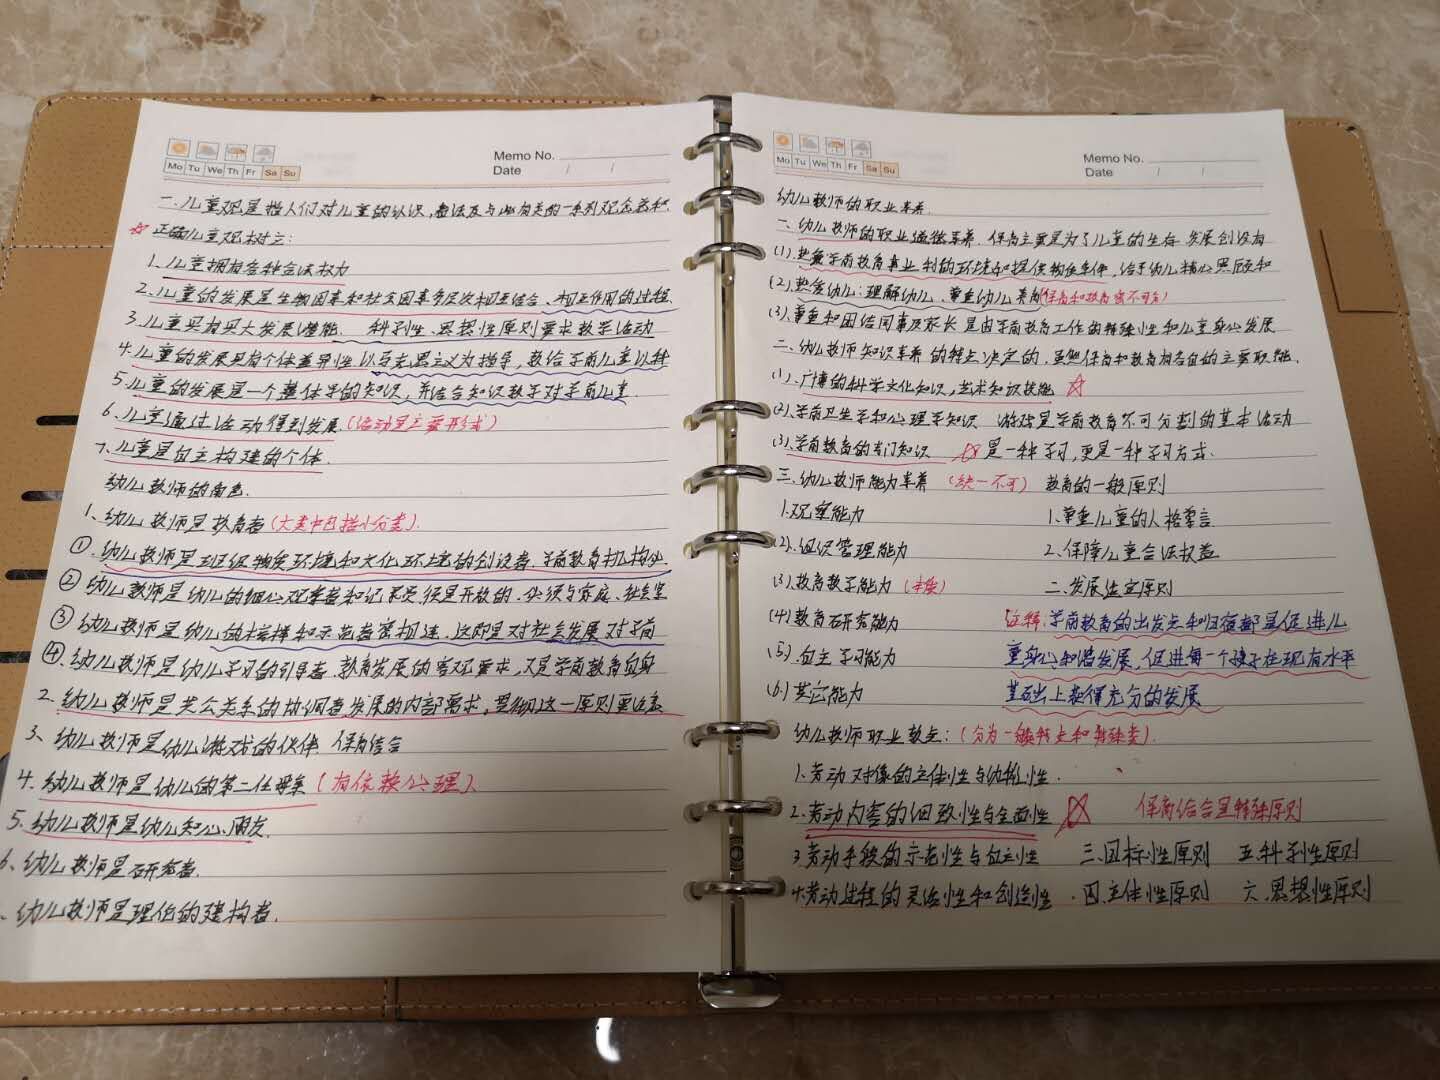 Mo Tu We Th Fr Sa Su
Memo No.
Date / /
一.儿童观是指人们对儿童的认识,看法及与此相关的一系列观念总和.
☆正确儿童观树立:
1.儿童拥有各种合法权力
2.儿童的发展是生物因素和社会因素多层次相互结合、相互作用的过程.
3.儿童具有巨大发展潜能. 科学性、思想性原则要求教学活动
4.儿童的发展具有个体差异性 以马克思主义为指导,教给学前儿童以科
5.儿童的发展是一个整体 学的知识,并结合知识教学对学前儿童.
6.儿童通过活动得到发展(活动是主要形式)
7.儿童是自主构建的个体.
幼儿教师的角色.
1、幼儿教师是教育者(大类中包括小分类).
①.幼儿教师是班级物质环境和文化环境的创设者.学前教育机构必
②幼儿教师是幼儿的细心观察者和记录员 须是开放的.必须与家庭、社会紧
③幼儿教师是幼儿的榜样和示范者 密相连.这即是对社会发展对学前
④.幼儿教师是幼儿学习的引导者.教育发展的客观要求,又是学前教育自身
2.幼儿教师是公共关系的协调者 发展的内部需求,贯彻这一原则要注意
3、幼儿教师是幼儿游戏的伙伴 保育结合
4.幼儿教师是幼儿的第二任母亲(有依赖心理)
5.幼儿教师是幼儿知心朋友.
6、幼儿教师是研究者.
、幼儿教师是理论的建构者.
Mo Tu We Th Fr Sa Su
Memo No.
Date / /
幼儿教师的职业素养.
一、幼儿教师的职业道德素养. 保育主要是为了儿童的生存 发展创设有
(1).热爱学前教育事业 利的环境和提供物质条件,给予幼儿精心照顾和
(2).热爱幼儿:理解幼儿、尊重幼儿 养育(保育和教育密不可分)
(3).尊重和团结同事及家长 是由学前教育工作的特殊性和儿童身心发展
二、幼儿教师知识素养 的特点决定的,虽然保育和教育有各自的主要职能.
(1)、广博的科学文化知识,艺术知识技能 ☆
(2).学前卫生学和心理学知识 游戏是学前教育不可分割的基本活动
(3).学前教育的专门知识 ☆是一种学习,更是一种学习方式.
三.幼儿教师能力素养(缺一不可) 教育的一般原则
1.观察能力 1.尊重儿童的人格尊言
(2).组织管理能力 2.保障儿童合法权益
(3).教育教学能力 二.发展适宜原则
(4)教育研究能力 注释:学前教育的出发点和归宿都是促进儿
(5).自主学习能力 童身心和谐发展,促进每一个孩子在现有水平
(6.)其它能力 基础上获得充分的发展
幼儿教师职业教点:(分为一般特点和特殊类).
1.劳动对像的主体性与幼稚性.
2.劳动内容的细致性与全面性 ☆ 保育结合是特殊原则
3.劳动手段的示范性与自主性 三.目标性原则 五.科学性原则
4.劳动过程的灵活性和创造性 . 四.主体性原则 六.思想性原则